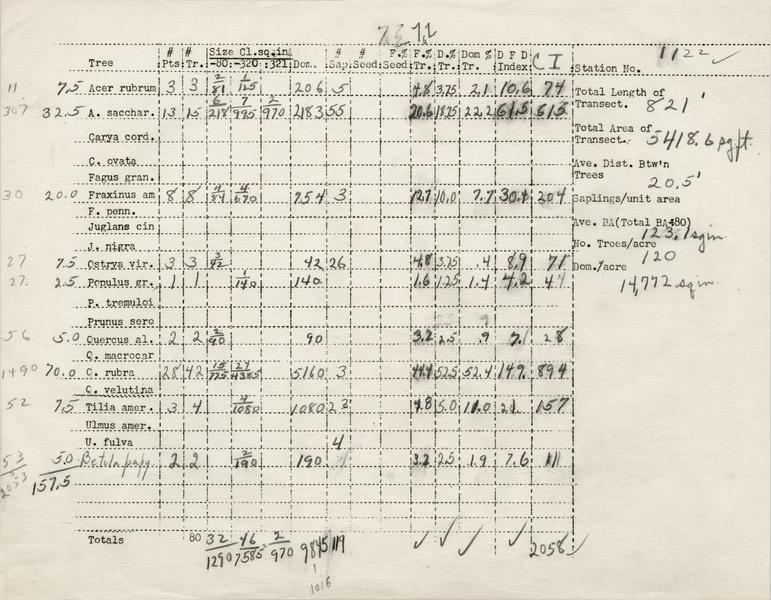 # # Size Cl.sq.in. # # F.% F.% D.% Dom % D F D C I
Tree Pts. Tr. -80: -320: 321: Dom. Sap. Seed. Seed Tr. Tr. Tr. Index Station No. 1122
11 7.5 Acer rubrum 3 3 2/81 1/125 206 5 4.8 3.75 2.1 10.6 74
Total Length of
Transect. 821'
307 32.5 A. sacchar. 13 15 6/218 7/995 2/970 2183 55 20.6 18.75 22.2 61.5 615
Carya cord.
Total Area of
Transect. 5418.6 sq ft.
C. ovata
Ave. Dist. Btw'n
Trees 20.5'
Fagus gran.
30 20.0 Fraxinus am 8 8 4/84 4/670 754 3 12.7 10.0 7.7 30.4 204
Saplings/unit area
F. penn.
Juglans cin
Ave. BA(Total BA÷80)
123.1 sq in.
J. nigra
No. Trees/acre
120
27 7.5 Ostrya vir. 3 3 3/42 42 26 4.8 3.75 .4 8.9 71
Dom./acre
14,772 sq in.
27. 2.5 Populus gr. 1 1 1/140 140 1.6 1.25 1.4 4.2 44
P. tremuloi
Prunus sero
56 5.0 Quercus al. 2 2 2/90 90 3.2 2.5 .9 7.1 28
Q. macrocar
1490 70.0 Q. rubra 28 42 15/775 27/4385 5160 3 44.4 52.5 52.4 149. 894
Q. velutina
52 7.5 Tilia amer. 3 4 4/1080 1080 23 4.8 5.0 11.0 21. 157
Ulmus amer.
U. fulva 4
53 5.0 Betula papy. 2 2 2/190 190 3.2 2.5 1.9 7.6 111
2053 157.5
Totals 80 32/1290 46/7585 2/970 9845 119 2058
1016